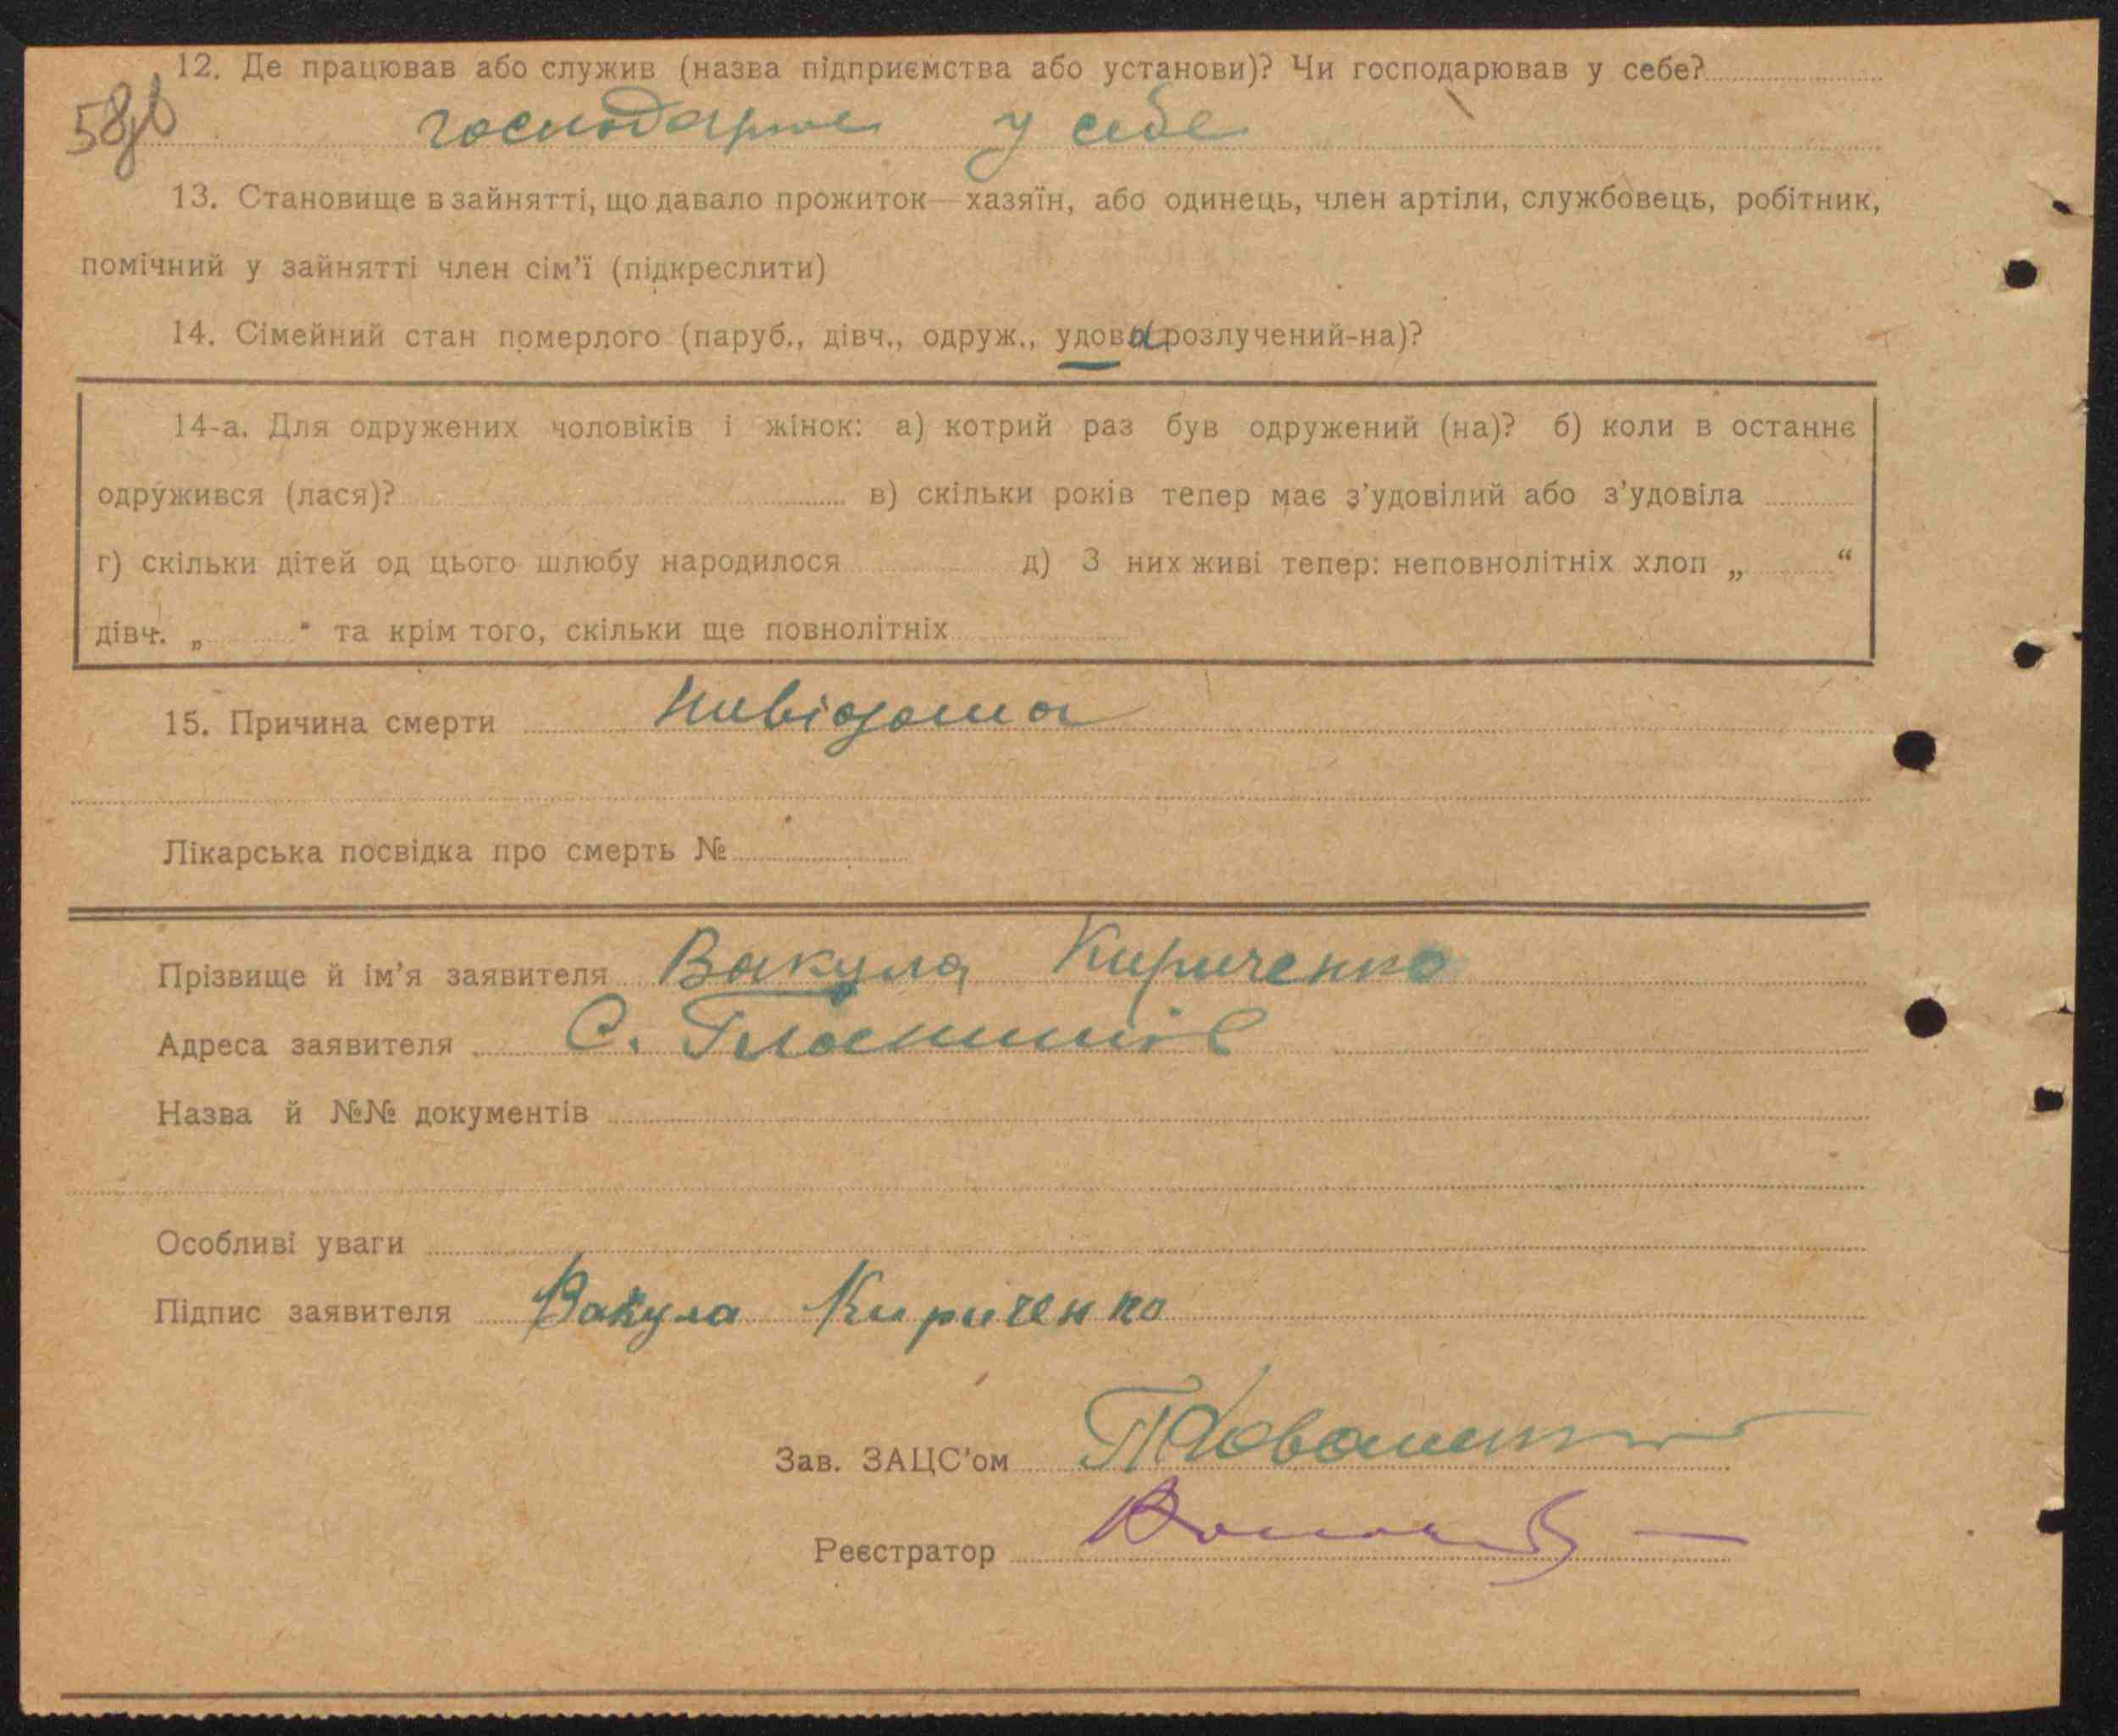 12. Де працював або служив (назва підприємства або установи)? Чи господарював у себе?
58 господарює у себе
13. Становище в зайнятті, що давало прожиток—хазяїн, або одинець, член артіли, службовець, робітник,
помічний у зайнятті член сім'ї (підкреслити)
14. Сімейний стан померлого (паруб., дівч., одруж., удова розлучений-на)?
14-а. Для одружених чоловіків і жінок: а) котрий раз був одружений (на)? б) коли в останнє
одружився (лася)? в) скільки років тепер має з'удовілий або з'удовіла
г) скільки дітей од цього шлюбу народилося д) З них живі тепер: неповнолітніх хлоп „ “
дівч. „ “ та крім того, скільки ще повнолітніх
15. Причина смерти Нивідома
Лікарська посвідка про смерть №
Прізвище й ім'я заявителя Вакула Кириченко
Адреса заявителя С.
Назва й №№ документів
Особливі уваги
Підпис заявителя Вакула Кириченко
Зав. ЗАЦС'ом
Реєстратор